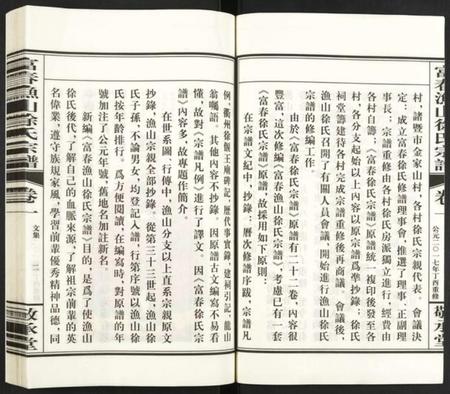 富春漁山徐氏宗譜
卷一
公元二〇一七年丁酉重修
敬承堂
村，諸暨市金家山村，各村徐氏宗親代表。會議決
定：成立富春徐氏修譜理事會，推選了理事、正副理
事長；宗譜重修由各村徐氏房派獨立進行，經費由
各村自籌；《富春徐氏宗譜》原譜統一複印後發至各
村，各分支始以上内容以原宗譜爲準抄錄；徐氏
祠堂籌建待各村完成宗譜重修後再商議。會議後，
漁山徐氏召開了有關人員會議，開始進行漁山徐氏
宗譜的修編工作。
由於《富春徐氏宗譜》原譜有二十二卷，内容很
豐富，這次修編《富春漁山徐氏宗譜》，考慮已有一套
《富春徐氏宗譜》原譜，故採用如下原則：
在宗譜文紀中，抄錄：曆次修譜序跋，宗譜凡
例，衢州徐偃王廟碑記，歷代事實錄，建祠引記，龍山
翁囑語。其他内容不抄錄。因原譜古文編寫不易看
懂，故對《宗譜凡例》進行了譯文。因《富春徐氏宗
譜》内容多，故專題作簡介。
在世系圖、行傳中，漁山分支以上直系宗親原文
抄錄，漁山宗親全部抄錄。從第三十三世起，漁山徐
氏子孫，不論男女，均登記入譜。行第序號以漁山徐
氏按年齡排行。爲方便閱讀，在編寫時，對原譜的年
號加注了公元年號，舊地名加註新名。
新編《富春漁山徐氏宗譜》目的，是爲了使漁山
徐氏後代，了解自己的血脈來源，了解祖宗前輩的英
名偉業，遵守族規家風，學習前輩優秀精神品德，同
富春漁山徐氏宗譜
卷一
文集
二
敬承堂